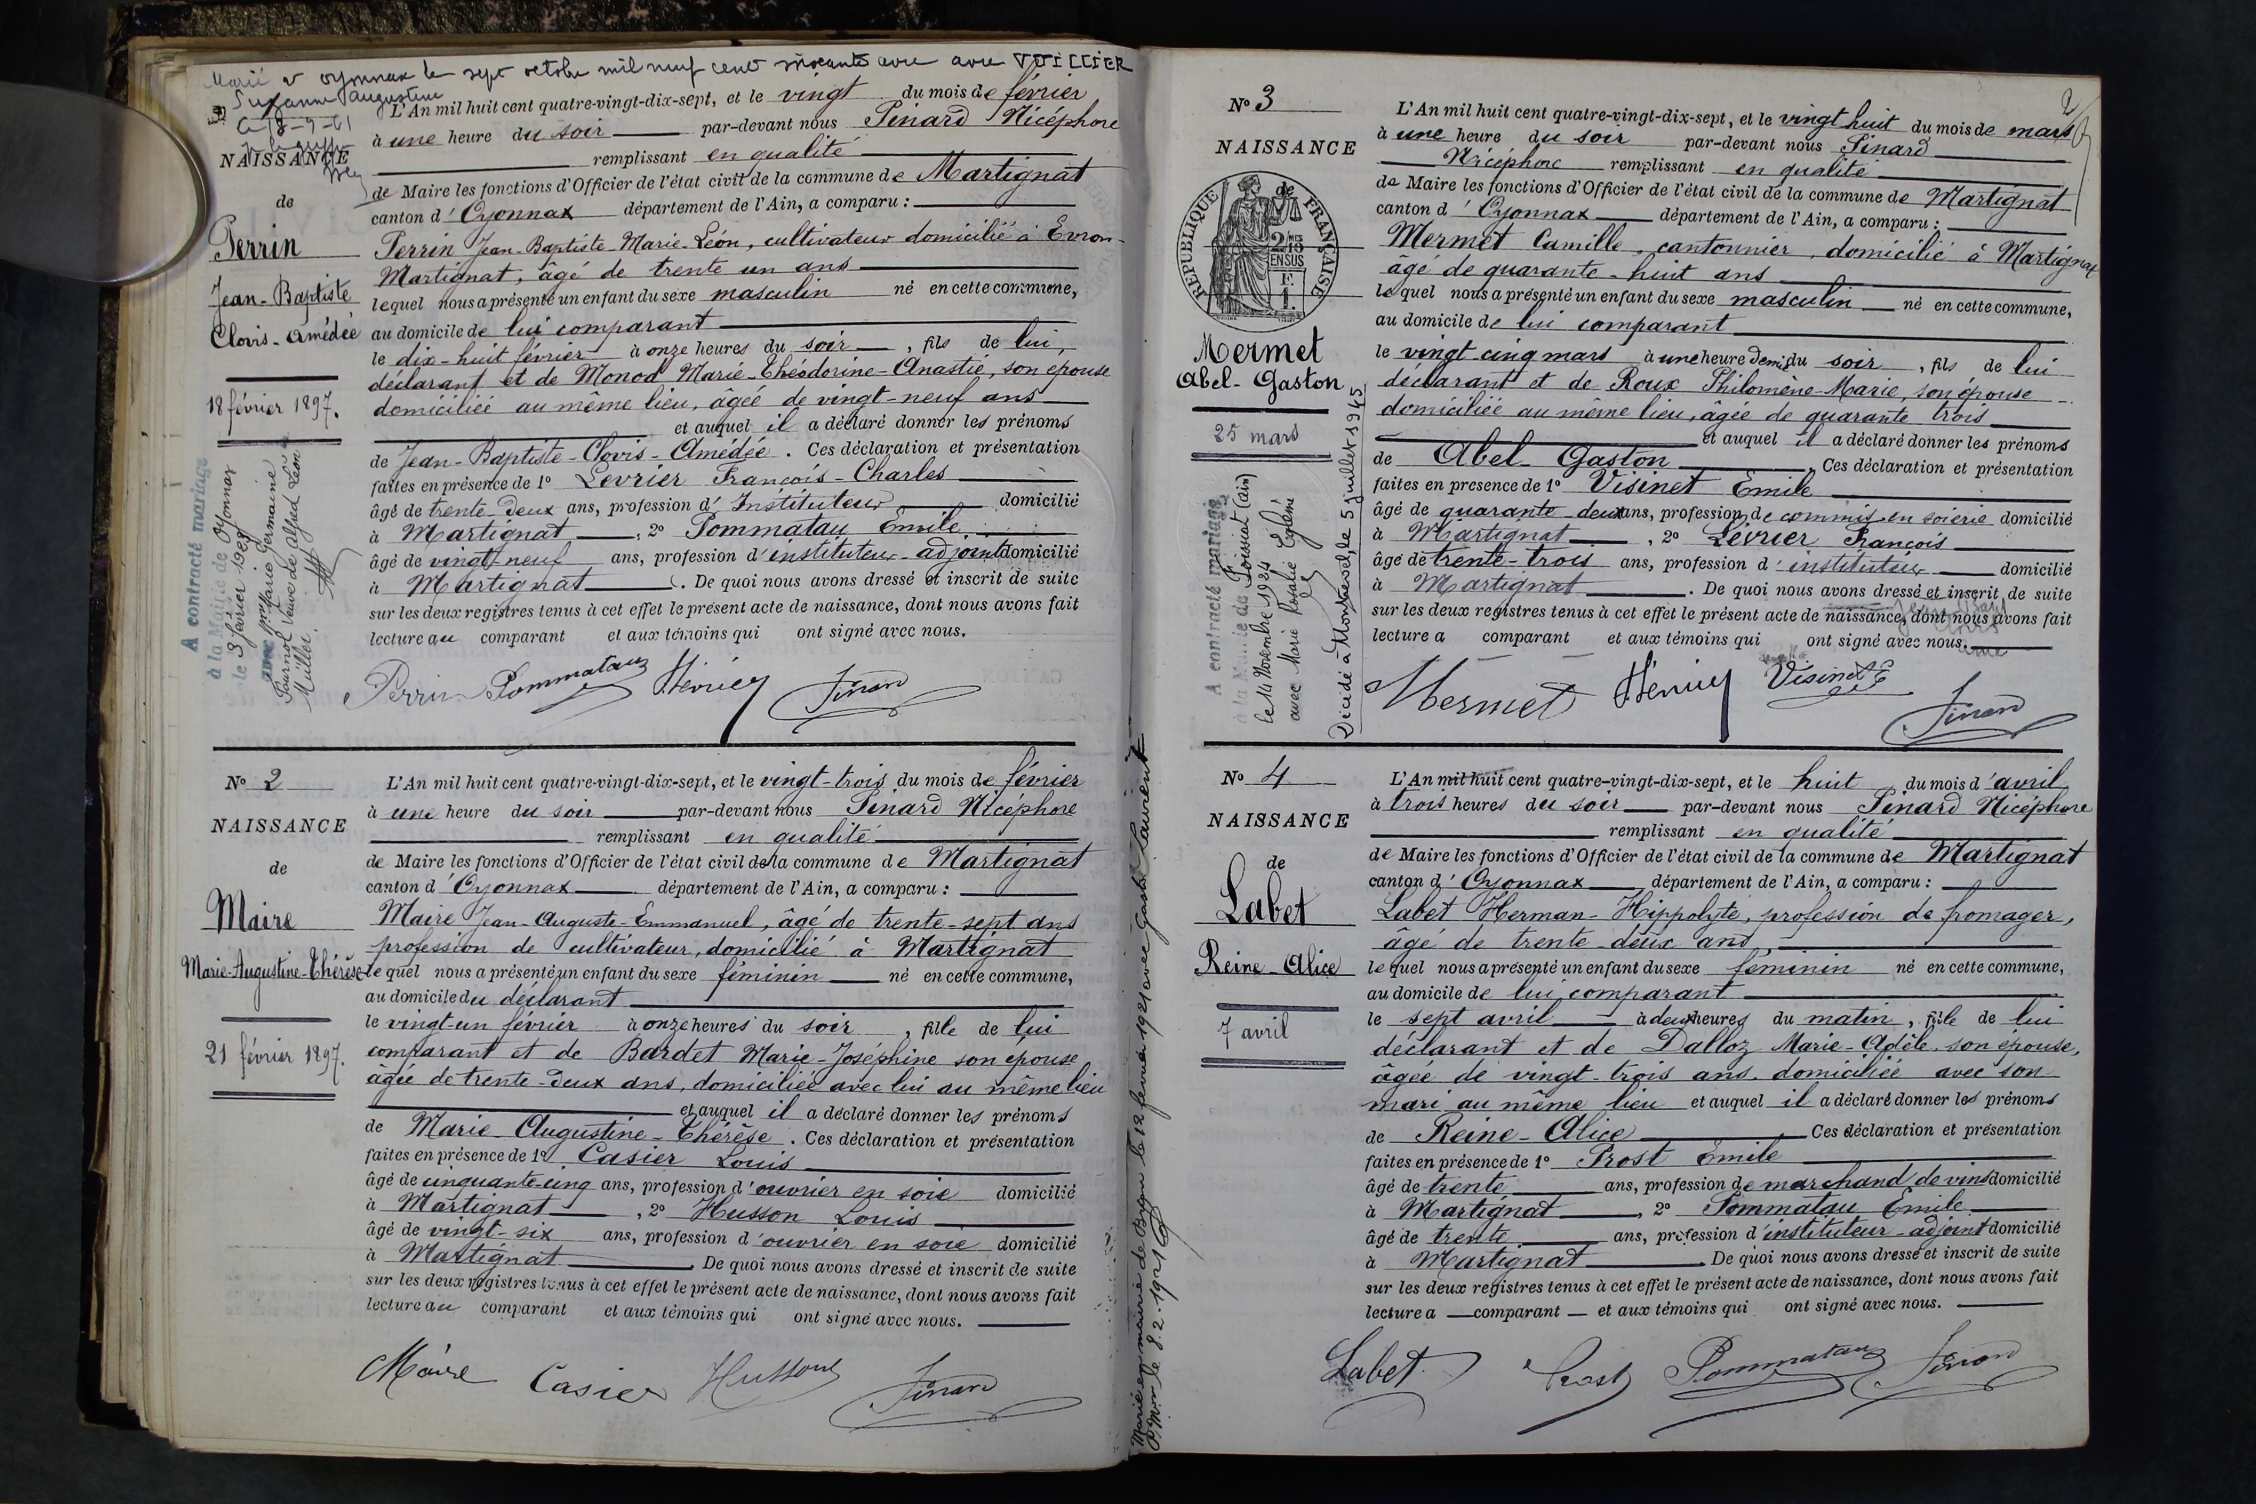 Marié à Oyonnax le sept octobre mil neuf cent soixante avec VUILLIER
Suzanne Augustine
L'An mil huit cent quatre-vingt-dix-sept, et le vingt du mois de février
à une heure du soir par-devant nous Pinard Nicéphore
NAISSANCE
remplissant en qualité
de Maire les fonctions d'Officier de l'état civil de la commune de Martignat
de
canton d'Oyonnax département de l'Ain, a comparu :
Perrin
Perrin Jean-Baptiste-Marie-Léon, cultivateur domicilié à Evron-
Martignat, âgé de trente un ans
Jean-Baptiste
Clovis-Amédée
lequel nous a présenté un enfant du sexe masculin né en cette commune,
au domicile de lui comparant
le dix-huit février à onze heures du soir, fils de lui,
déclarant et de Monod Marie-Théodorine-Anastie, son épouse
18 février 1897.
domiciliée au même lieu, âgée de vingt-neuf ans
et auquel il a déclaré donner les prénoms
de Jean-Baptiste-Clovis-Amédée. Ces déclaration et présentation
faites en présence de 1º Levrier François-Charles
âgé de trente-deux ans, profession d'Instituteur domicilié
à Martignat, 2º Pommatau Emile
âgé de vingt neuf ans, profession d'instituteur-adjoint domicilié
à Martignat. De quoi nous avons dressé et inscrit de suite
sur les deux registres tenus à cet effet le présent acte de naissance, dont nous avons fait
lecture au comparant et aux témoins qui ont signé avec nous.
A contracté mariage
à la Mairie de Oyonnax
le 3 février 1923
avec Marie Germaine
Tournol veuve de Alfred Léon
Muller.
Perrin Pommatau Hévrier Pinard
Nº 2
L'An mil huit cent quatre-vingt-dix-sept, et le vingt-trois du mois de février
à une heure du soir par-devant nous Pinard Nicéphore
NAISSANCE
remplissant en qualité
de Maire les fonctions d'Officier de l'état civil de la commune de Martignat
de
canton d'Oyonnax département de l'Ain, a comparu :
Maire
Maire Jean-Auguste-Emmanuel, âgé de trente-sept ans
profession de cultivateur, domicilié à Martignat
Marie-Augustine-Thérèse
lequel nous a présenté un enfant du sexe féminin né en cette commune,
au domicile du déclarant
le vingt-un février à onze heures du soir, fille de lui
21 février 1897.
comparant et de Bardet Marie-Joséphine son épouse
âgée de trente-deux ans, domiciliée avec lui au même lieu
et auquel il a déclaré donner les prénoms
de Marie-Augustine-Thérèse. Ces déclaration et présentation
faites en présence de 1º Casier Louis
âgé de cinquante-cinq ans, profession d'ouvrier en soie domicilié
à Martignat, 2º Husson Louis
âgé de vingt-six ans, profession d'ouvrier en soie domicilié
à Martignat. De quoi nous avons dressé et inscrit de suite
sur les deux registres tenus à cet effet le présent acte de naissance, dont nous avons fait
lecture au comparant et aux témoins qui ont signé avec nous.
Maire Casier Husson Pinard
Mariée en mairie de le 12 février 1921 avec Gaston Laurent
le 8.2.1921
2
Nº 3
L'An mil huit cent quatre-vingt-dix-sept, et le vingt huit du mois de mars
à une heure du soir par-devant nous Pinard
NAISSANCE
Nicéphore remplissant en qualité
de Maire les fonctions d'Officier de l'état civil de la commune de Martignat
de
canton d'Oyonnax département de l'Ain, a comparu :
RÉPUBLIQUE FRANÇAISE
2/10 EN SUS
F. 1.
Mermet Camille, cantonnier, domicilié à Martignat
âgé de quarante-huit ans
lequel nous a présenté un enfant du sexe masculin né en cette commune,
au domicile de lui comparant
Mermet
Abel-Gaston
le vingt cinq mars à une heure demi du soir, fils de lui
déclarant et de Roux Philomène-Marie, son épouse
domiciliée au même lieu, âgée de quarante trois
25 mars
et auquel il a déclaré donner les prénoms
de Abel-Gaston. Ces déclaration et présentation
faites en présence de 1º Visinet Emile
âgé de quarante deux ans, profession de commis en soierie domicilié
à Martignat, 2º Lévrier François
âgé de trente-trois ans, profession d'instituteur domicilié
à Martignat. De quoi nous avons dressé et inscrit de suite
sur les deux registres tenus à cet effet le présent acte de naissance, dont nous avons fait
lecture a comparant et aux témoins qui ont signé avec nous.
A contracté mariage
à la Mairie de Foissiat (Ain)
le 14 Novembre 1924
avec Marie Rosalie
Décédé à Montrevel, le 5 juillet 1945
Mermet Hévrier Visinet E Pinard
Nº 4
L'An mil huit cent quatre-vingt-dix-sept, et le huit du mois d'avril
à trois heures du soir par-devant nous Pinard Nicéphore
NAISSANCE
remplissant en qualité
de Maire les fonctions d'Officier de l'état civil de la commune de Martignat
de
canton d'Oyonnax département de l'Ain, a comparu :
Labet
Labet Herman-Hippolyte, profession de fromager,
âgé de trente-deux ans,
Reine-Alice
lequel nous a présenté un enfant du sexe féminin né en cette commune,
au domicile de lui comparant
7 avril
le sept avril à deux heures du matin, fille de lui
déclarant et de Dalloz Marie-Adèle, son épouse,
âgée de vingt-trois ans domiciliée avec son
mari au même lieu et auquel il a déclaré donner les prénoms
de Reine-Alice Ces déclaration et présentation
faites en présence de 1º Prost Emile
âgé de trente ans, profession de marchand de vins domicilié
à Martignat, 2º Pommatau Emile
âgé de trente ans, profession d'instituteur-adjoint domicilié
à Martignat. De quoi nous avons dressé et inscrit de suite
sur les deux registres tenus à cet effet le présent acte de naissance, dont nous avons fait
lecture a comparant et aux témoins qui ont signé avec nous.
Labet Prost Pommatau Pinard